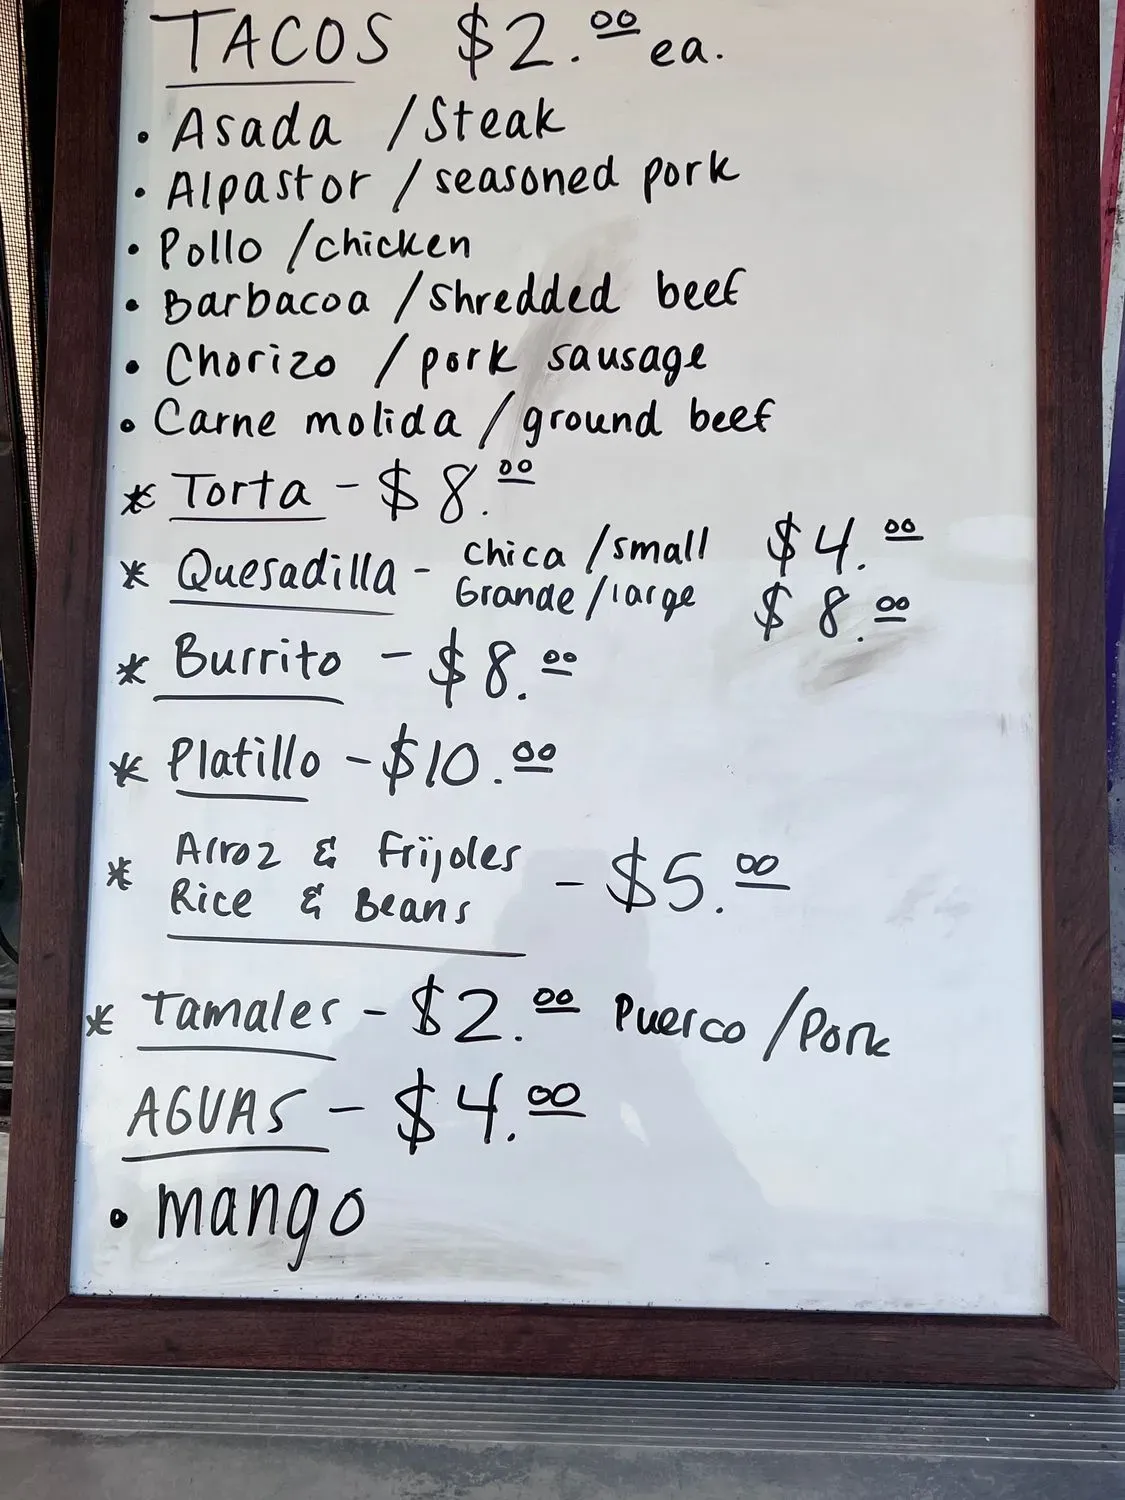 TACOS $2.00 ea.
• Asada / Steak
• Alpastor / seasoned pork
• Pollo / chicken
• Barbacoa / shredded beef
• Chorizo / pork sausage
• Carne molida / ground beef
* Torta - $8.00
* Quesadilla - Chica / small $4.00
Grande / large $8.00
* Burrito - $8.00
* Platillo - $10.00
* Arroz & Frijoles
Rice & Beans - $5.00
* Tamales - $2.00 Puerco / Pork
AGUAS - $4.00
• mango